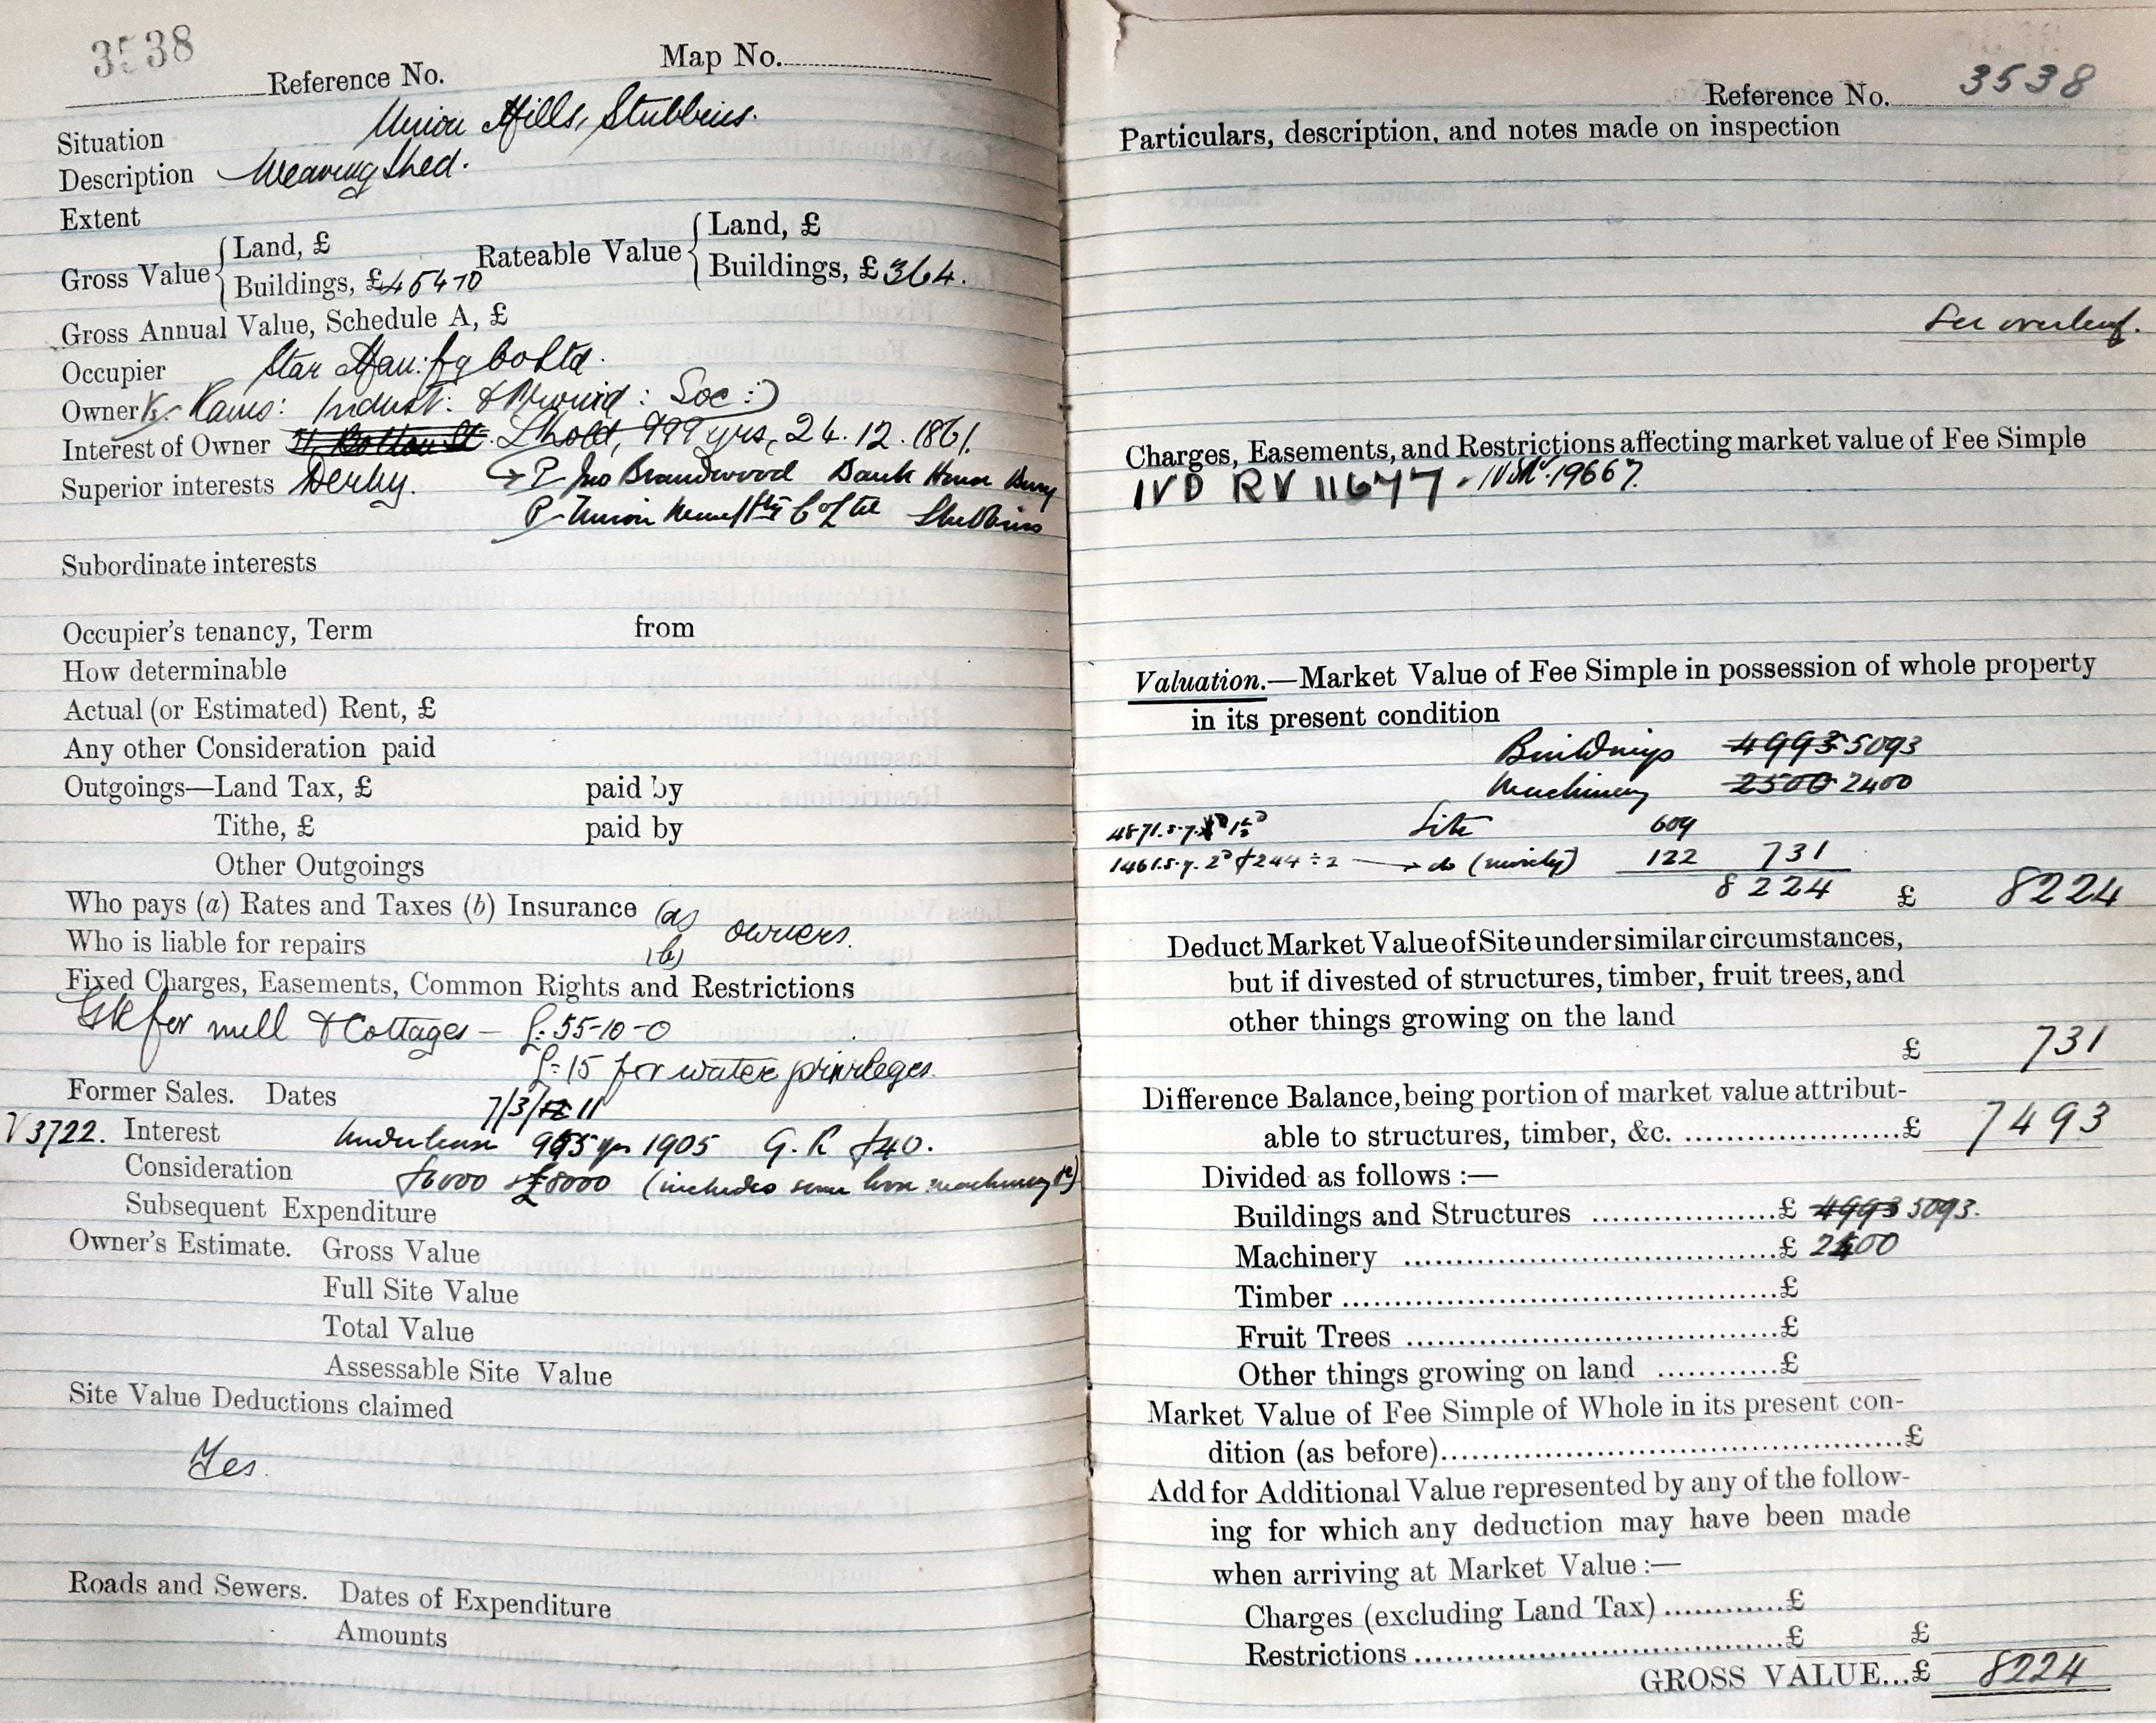 3538
Reference No. Map No.
Situation Union Mills, Stubbins.
Description Weaving Shed.
Extent
Gross Value { Land, £ Rateable Value { Land, £
Buildings, £ Buildings, £ 364.
Gross Annual Value, Schedule A, £
Occupier Star Man:fg Co Ltd.
Owner Rams: Indust: & Provid: Soc:
Interest of Owner Lhold, 999 yrs, 24.12.1861.
Superior interests Derby. P Jno Brandwood Bank House Bury
P Union Co Ltd Stubbins
Subordinate interests
Occupier's tenancy, Term from
How determinable
Actual (or Estimated) Rent, £
Any other Consideration paid
Outgoings—Land Tax, £ paid by
Tithe, £ paid by
Other Outgoings
Who pays (a) Rates and Taxes (b) Insurance (a) owners.
Who is liable for repairs (b)
Fixed Charges, Easements, Common Rights and Restrictions
for mill & Cottages — £:55-10-0
£:15 for water privileges.
Former Sales. Dates 7/3/11
V3722. Interest Underlease 955 yrs 1905 G. R £40.
Consideration £6000 £8000 (includes some loose machinery &c)
Subsequent Expenditure
Owner's Estimate. Gross Value
Full Site Value
Total Value
Assessable Site Value
Site Value Deductions claimed
Yes.
Roads and Sewers. Dates of Expenditure
Amounts
Reference No. 3538
Particulars, description, and notes made on inspection
See overleaf.
Charges, Easements, and Restrictions affecting market value of Fee Simple
IVD RV 11677 - 19667.
Valuation.—Market Value of Fee Simple in possession of whole property
in its present condition
Buildings 4993 5093
Machinery 2500 2400
4871.s.y. Site 609
1461.s.y. 2D £244 ÷ 2 → do (minely) 122 731
8224 £ 8224
Deduct Market Value of Site under similar circumstances,
but if divested of structures, timber, fruit trees, and
other things growing on the land
£ 731
Difference Balance, being portion of market value attribut-
able to structures, timber, &c. ........................£ 7493
Divided as follows :—
Buildings and Structures ....................£ 4993 5093.
Machinery ....................................£ 2400
Timber ..........................................£
Fruit Trees ....................................£
Other things growing on land ............£
Market Value of Fee Simple of Whole in its present con-
dition (as before)................................................£
Add for Additional Value represented by any of the follow-
ing for which any deduction may have been made
when arriving at Market Value :—
Charges (excluding Land Tax) ............£
Restrictions ....................................£ £
GROSS VALUE...£ 8224